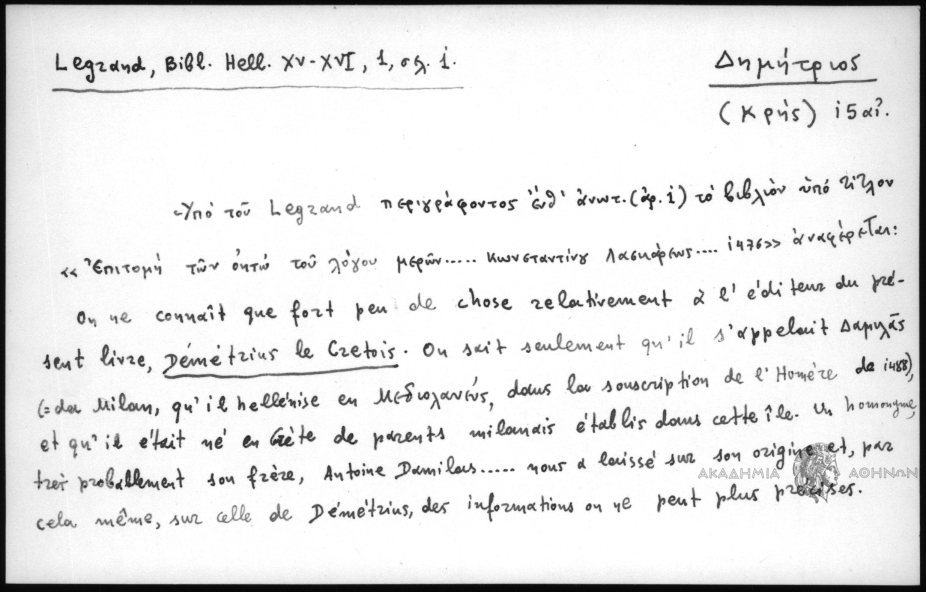 Legrand, Bibl. Hell. XV-XVI, 1, σελ. 1.
Δημήτριος
(Κρής) 15 αἰ.
-Ὑπό τοῦ Legrand περιγράφοντος ἔνθ' ἀνωτ. (ἀρ. 1) τό βιβλίον ὑπό τίτλον
«Ἐπιτομή τῶν ὀκτώ τοῦ λόγου μερῶν..... Κωνσταντίνου Λασκάρεως.... 1476» ἀναφέρεται:
On ne connaît que fort peu de chose relativement à l'éditeur du pré-
sent livre, Démétrius le Crétois. On sait seulement qu'il s'appelait Δαμιλᾶς
(=da Milan, qu'il hellénise en Μεδιολανεύς, dans la souscription de l'Homère de 1488),
et qu'il était né en Crète de parents milanais établis dans cette île. Un homonyme,
très probablement son frère, Antoine Damilas..... nous a laissé sur son origine et, par
cela même, sur celle de Démétrius, des informations on ne peut plus précises.
ΑΚΑΔΗΜΙΑ ΑΘΗΝΩΝ